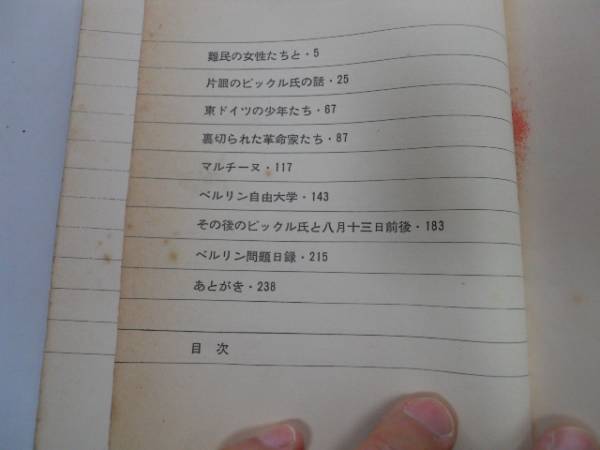 難民の女性たちと・5
片眼のビックル氏の話・25
東ドイツの少年たち・67
裏切られた革命家たち・87
マルチーヌ・117
ベルリン自由大学・143
その後のビックル氏と八月十三日前後・183
ベルリン問題日録・215
あとがき・238
目 次